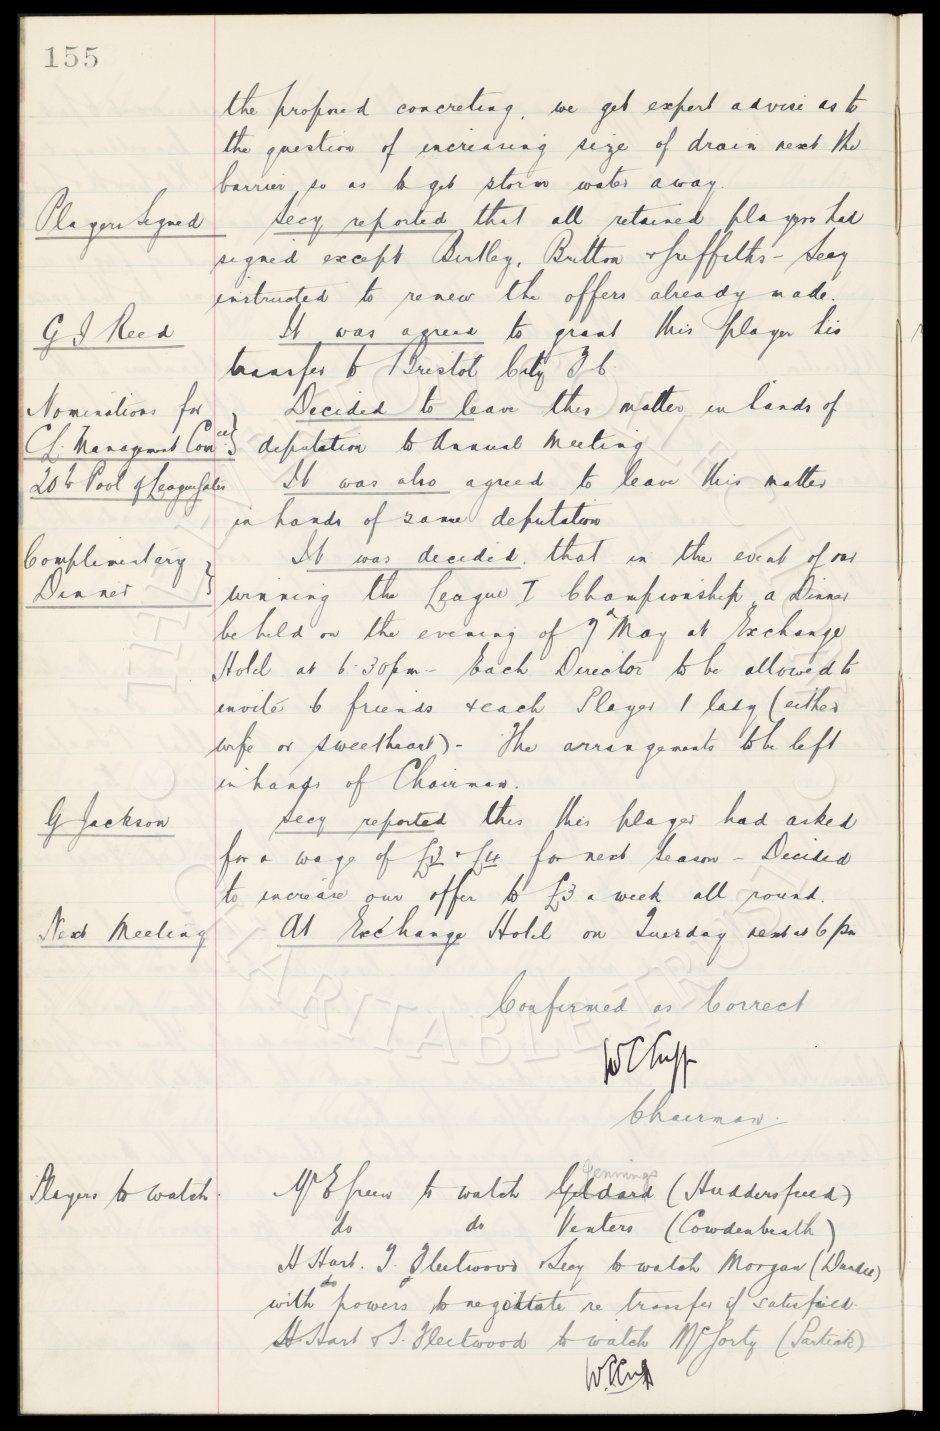 155
the proposed concreting, we get expert advise as to
the question of increasing size of drain next the
barrier so as to get storm water away.
Players Signed Secy reported that all retained players had
signed except Birtley, Britton & Griffiths - Secy
instructed to renew the offers already made.
G J Reed It was agreed to grant this player his
transfer to Bristol City F C.
Nominations for Decided to leave this matter in hands of
C.L. Management Com'ee deputation to Annual Meeting
20% Pool of League Gates It was also agreed to leave this matter
in hands of same deputation
Complimentary It was decided that in the event of our
Dinner winning the League I Championship a Dinner
be held on the evening of 7th May at Exchange
Hotel at 6.30pm - Each Director to be allowed to
invite 6 friends & each Player 1 lady (either
wife or sweetheart) - The arrangements to be left
in hands of Chairman.
G Jackson Secy reported this this player had asked
for a wage of £3 & £4 for next season - Decided
to increase our offer to £3 a week all round.
Next Meeting At Exchange Hotel on Tuesday next at 6 pm
Confirmed as Correct
W C Cuff
Chairman.
Jennings
Players to watch Mr E Green to watch Geldard (Huddersfield)
do do Venters (Cowdenbeath)
H Hart. J. Fleetwood & Secy to watch Morgan (Dundee)
with powers to negotiate re transfer if satisfied.
H Hart & J. Fleetwood to watch (Partick)
W.C.Cuff
THE EVERTON COLLECTION CHARITABLE TRUST